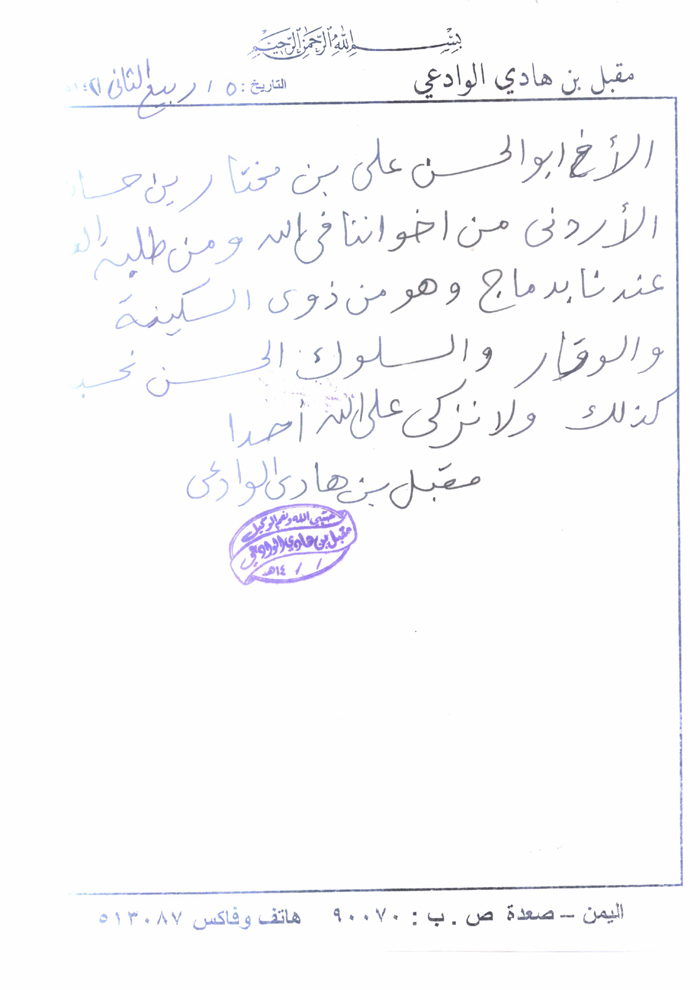 بسم الله الرحمن الرحيم
مقبل بن هادي الوادعي
التاريخ: ١٥ ربيع الثاني
الأخ ابو الحسن علي بن مختار بن
الأردني من اخواننا في الله ومن طلبة
عندنا بدماج وهو من ذوي السكينة
والوقار والسلوك الحسن
كذلك ولا نزكي على الله أحدا
مقبل بن هادي الوادعي
حسبي الله ونعم الوكيل
مقبل بن هادي الوادعي
/ / ١٤هـ
اليمن – صعدة ص . ب : ٩٠٠٧٠ هاتف وفاكس ٥١٣٠٨٧